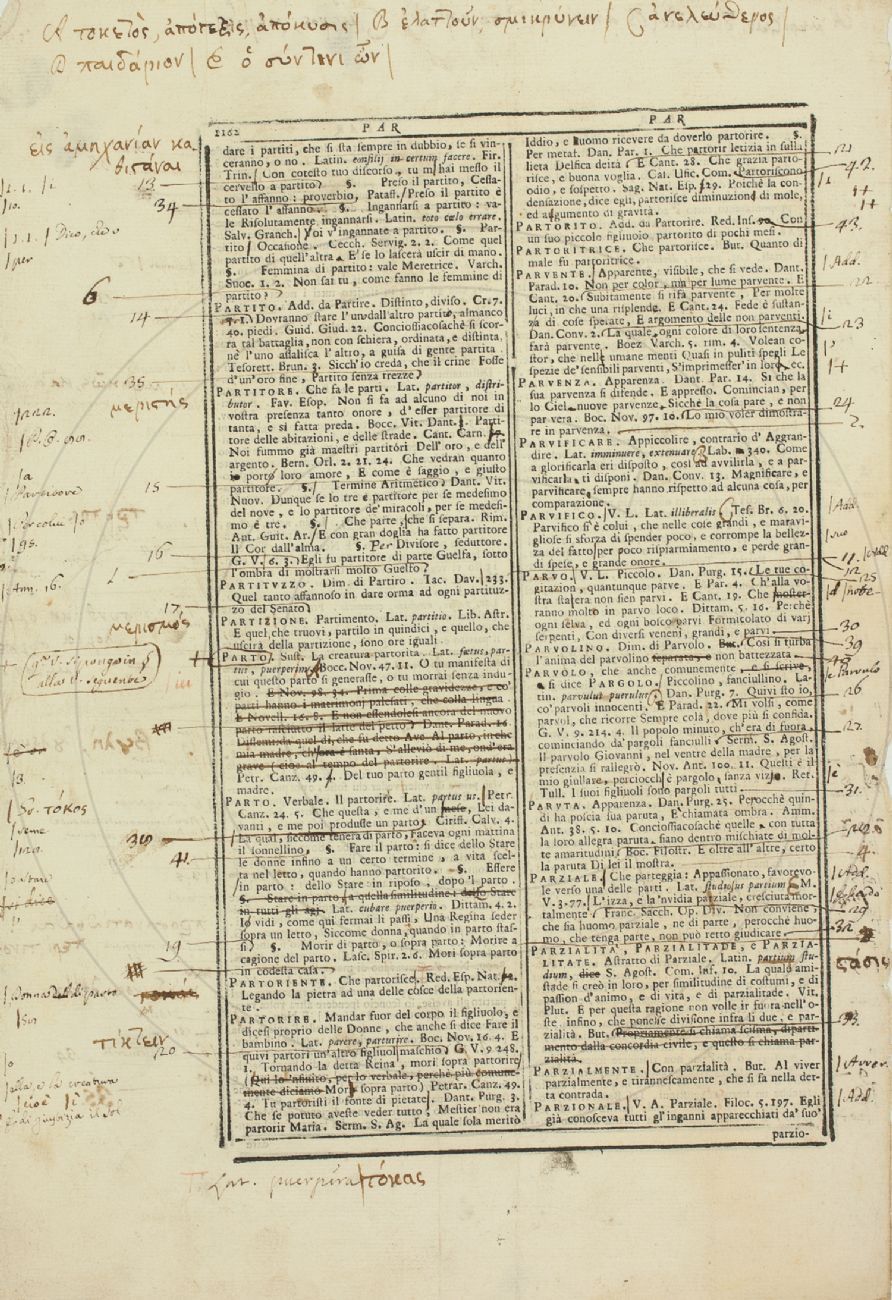 A τοκετὸς, ἀπότεξις, ἀπόκυσις / B ἐλαττοῦν, σμικρύνειν / C ἀνελεύθερος /
D παιδάριον / E ὁ σύντινι ὢν /
εἰς ἀμηχανίαν κα
θιστάναι
13
34
6
14
35
μεριστής
15
16
17
μερισμός
39
41
19
τίκτειν
20
1162
PAR
dare i partiti, che si sta sempre in dubbio, se si vin-
ceranno, o no. Latin. consilij in certum facere. Fir.
Trin. Con cotesto tuo discorso, tu m' hai messo il
cervello a partito. §. Preso il partito, Cessa-
to l' affanno: proverbio, Pataff. Preso il partito è
cessato l' affanno. §. Ingannarsi a partito: va-
le Risolutamente ingannarsi. Latin. toto cœlo errare.
Salv. Granch. Voi v'ingannate a partito. §. Par-
tito Occasione. Cecch. Servig. 2. 2. Come quel
partito di quell'altra. E se lo lascerà uscir di mano.
§. Femmina di partito: vale Meretrice. Varch.
Suoc. 1. 2. Non sai tu, come fanno le femmine di
partito?
PARTITO. Add. da Partire. Distinto, diviso. Cr. 7.
3. 1. Dovranno stare l'un dall'altro partito, almanco
40. piedi. Guid. Giud. 22. Conciossiacosachè si scor-
ra tal battaglia, non con schiera, ordinata, e distinta,
nè l'uno assalisca l'altro, a guisa di gente partita.
Tesorett. Brun. 3. Sicch' io creda, che il crine Fosse
d'un' oro fine, Partito senza trezze.
PARTITORE. Che fa le parti. Lat. partitor, distri-
butor. Fav. Esop. Non si fa ad alcuno di noi in
vostra presenza tanto onore, d'esser partitore di
tanta, e sì fatta preda. Bocc. Vit. Dant. Parti-
tore delle abitazioni, e delle strade. Cant. Carn.
Noi fummo già maestri partitori Dell' oro, e dell'
argento. Bern. Orl. 2. 21. 24. Che vedran quanto
porto loro amore, E come è saggio, e giusto
partitore. §. Termine Aritmetico. Dant. Vit.
Nuov. Dunque se lo tre è partitore per se medesimo
del nove, e lo partitore de' miracoli, per se medesi-
mo è tre. §. Che parte, che si separa. Rim.
Ant. Guit. Ar. E con gran doglia ha fatto partitore
Il Cor dall'alma. §. Per Divisore, seduttore.
G. V. 6. 3. Egli fu partitore di parte Guelfa, sotto
l'ombra di mostrarsi molto Guelfo.
PARTITUZZO. Dim. di Partito. Tac. Dav. 233.
Quel tanto affannoso in dare orma ad ogni partituz-
zo del Senato.
PARTIZIONE. Partimento. Lat. partitio. Lib. Astr.
E quel che truovi, partilo in quindici, e quello, che
uscirà della partizione, sono ore iguali.
PARTO. Sust. La creatura partorita. Lat. fœtus, par-
tus, puerperium. Bocc. Nov. 47. 11. O tu manifesta di
cui questo parto si generasse, o tu morrai senza indu-
gio. E Nov. 98. 34. Prima colle gravidezze, e co'
parti hanno i matrimonj palesati, che colla lingua.
E Novell. 16. 8. E non essendolesi ancora del nuovo
parto rasciutto il latte del petto. Dant. Parad. 16.
Dissemi: da quel dì, che fu detto Ave Al parto, in che
mia madre, ch'ora è santa, S'alleviò di me, ond'era
grave (cioè al tempo del partorire. Lat. partus)
Petr. Canz. 49. 4. Del tuo parto gentil figliuola, e
madre.
PARTO. Verbale. Il partorire. Lat. partus us. Petr.
Canz. 24. 5. Che questa, e me d'un seme, Lei da-
vanti, e me poi produsse un parto. Ciriff. Calv. 4.
La qual, siccome tenera di parto, Faceva ogni mattina
il sonnellino. §. Fare il parto: si dice dello Stare
le donne infino a un certo termine, a vita scel-
ta nel letto, quando hanno partorito. §. Essere
in parto: dello Stare in riposo, dopo 'l parto.
§. Stare in parto, a quella similitudine: dello Stare
in tutti gli agj. Lat. cubare puerperio. Dittam. 4. 2.
Io vidi, come qui fermai li passi, Una Regina seder
sopra un letto, Siccome donna, quando in parto stas-
si. §. Morir di parto, o sopra parto: Morire a
cagione del parto. Lasc. Spir. 2. 6. Morì sopra parto
in codesta casa.
PARTORIENTE. Che partorisce. Red. Esp. Nat.
Legando la pietra ad una delle cosce della partorien-
te.
PARTORIRE. Mandar fuor del corpo il figliuolo, e
dicesi proprio delle Donne, che anche si dice Fare il
bambino. Lat. parere, parturire. Boc. Nov. 16. 4. E
quivi partorì un'altro figliuol maschio. G. V. 9 248.
1. Tornando la detta Reina, morì sopra partorire
(Qui lo 'nfinito, per lo verbale, perchè più comune-
mente diciamo Morì sopra parto) Petrar. Canz. 49.
4. Tu partoristi il fonte di pietate. Dant. Purg. 3.
Che se potuto aveste veder tutto, Mestier non era
partorir Maria. Serm. S. Ag. La quale sola meritò
PAR
Iddio, e huomo ricevere da doverlo partorire. §.
Per metaf. Dan. Par. 1. Che partorir letizia in sulla
lieta Delfica deità. E Cant. 28. Che grazia parto-
risce, e buona voglia. Cal. Ufic. Com. Partoriscono
odio, e sospetto. Sag. Nat. Esp. 29. Poichè la con-
densazione, dice egli, partorisce diminuzion di mole,
ed argumento di gravità.
PARTORITO. Add. da Partorire. Red. Ins. 90. Con
un suo piccolo figliuolo, partorito di pochi mesi.
PARTORITRICE. Che partorisce. But. Quanto di
male fu partoritrice.
PARVENTE. Apparente, visibile, che si vede. Dant.
Parad. 10. Non per color, ma per lume parvente. E
Cant. 20. Subitamente si rifà parvente, Per molte
luci, in che una risplende. E Cant. 24. Fede è sustan-
za di cose sperate, E argomento delle non parventi.
Dan. Conv. 2. La quale, ogni colore di loro sentenza
farà parvente. Boez Varch. 5. rim. 4. Volean co-
stor, che nelle umane menti Quasi in puliti spegli Le
spezie de' sensibili parventi, S'imprimesser' in loro, ec.
PARVENZA. Apparenza. Dant. Par. 14. Sì che la
sua parvenza si difende. E appresso. Comincian, per
lo Ciel, nuove parvenze, Sicchè la cosa pare, e non
par vera. Boc. Nov. 97. 10. Lo mio voler dimostra-
re in parvenza.
PARVIFICARE. Appiccolire, contrario d' Aggran-
dire. Lat. imminuere, extenuare. Lab. 340. Come
a glorificarla eri disposto, così ad avvilirla, e a par-
vificarla ti disponi. Dan. Conv. 13. Magnificare, e
parvificare, sempre hanno rispetto ad alcuna cosa, per
comparazione.
PARVIFICO. V. L. Lat. illiberalis. Tes. Br. 6. 20.
Parvifico si è colui, che nelle cose grandi, e maravi-
gliose si sforza di spender poco, e corrompe la bellez-
za del fatto, per poco risparmiamento, e perde gran-
di spese, e grande onore.
PARVO. V. L. Piccolo. Dan. Purg. 15. Le tue co-
gitazion, quantunque parve. E Par. 4. Ch'alla vo-
stra statera non sien parvi. E Cant. 19. Che moster-
ranno molto in parvo loco. Dittam. 5. 16. Perchè
ogni selva, ed ogni bosco parvi Formicolato di varj
serpenti, Con diversi veneni, grandi, e parvi.
PARVOLINO. Dim. di Parvo. Boc. Così si turba
l'anima del parvolino separato, e non battezzata.
PARVOLO, che anche comunemente, e si scrive,
e si dice PARGOLO. Piccolino, fanciullino. La-
tin. parvulus puerulus. Dan. Purg. 7. Quivi sto io,
co' parvoli innocenti. E Parad. 22. Mi volsi, come
parvol, che ricorre Sempre colà, dove più si confida.
G. V. 9. 214. 4. Il popolo minuto, ch'era di fuora,
cominciando da' pargoli fanciulli. Serm. S. Agost.
Il parvolo Giovanni, nel ventre della madre, per la
presenzia si rallegrò. Nov. Ant. 100. 11. Questi è il
mio giullare, perciocch' è pargolo, sanza vizio. Ret.
Tull. I suoi figliuoli sono pargoli tutti.
PARUTA. Apparenza. Dan. Purg. 25. Perocchè quin-
di ha poscia sua paruta, È chiamata ombra. Amm.
Ant. 38. 5. 10. Conciossiacosachè quelle, con tutta
la loro allegra paruta, siano dentro mischiate di mol-
te amaritudini. Boc. Filostr. E oltre all'altre, certo
la paruta Di lei il mostra.
PARZIALE. Che parteggia: Appassionato, favorevo-
le verso una delle parti. Lat. studiosus partium. M.
V. 3. 77. L'izza, e la 'nvidia parziale, cresciuta mor-
talmente. Franc. Sacch. Op. Div. Non conviene,
che sia huomo parziale, nè di parte, perocchè huo-
mo, che tenga parte, non può retto giudicare.
PARZIALITÀ, PARZIALITADE, e PARZIA-
LITATE. Astratto di Parziale. Latin. partium stu-
dium, dice S. Agost. Com. Inf. 10. La quale ami-
stade si creò in loro, per similitudine di costumi, e di
passion d'animo, e di vita, e di parzialitade. Vit.
Plut. E per questa ragione non volle ir fuora nell'o-
ste, infino, che ponesse divisione infra li due, e par-
zialità. But. Propriamente si chiama scisma, diparti-
mento dalla concordia civile, e questo si chiama par-
zialità.
PARZIALMENTE. Con parzialità. But. Al viver
parzialmente, e tirannescamente, che si fa nella det-
ta contrada.
PARZIONALE. V. A. Parziale. Filoc. 5. 197. Egli
già conosceva tutti gl'inganni apparecchiati da' suo'
parzio-
21
42.
43.
Add.
22
23
24
2.
Add.
12
25
30
39
26
27.
31.
4.
Add.
29
32
στάσις
33.
Avver.
Add.
Lat. puerpera / τόκας